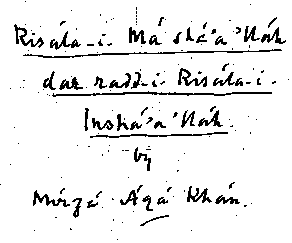 Risála-i. Má shá'a 'lláh
dar radd-i Risála-i.
Inshá'a 'lláh.
by
Mírzá Áqá Khán.